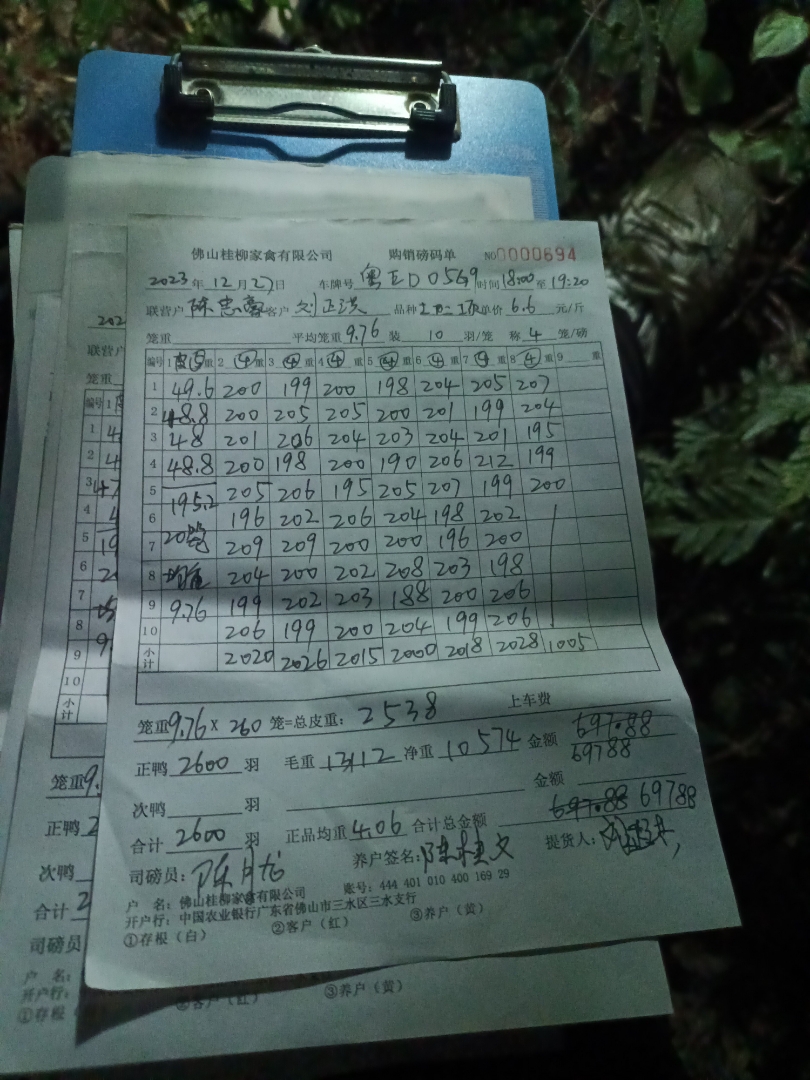 佛山桂柳家禽有限公司 购销磅码单 NO 0000694
2023年 12月 27日 车牌号 粤ED0569 时间 18:00 至 19:20
联营户 陈忠 客户 刘正洪 品种 单价 6.6 元/斤
笼重 平均笼重 9.76 装 10 羽/笼 称 4 笼/磅
编号 1 重 2 ④ 重 3 ④ 重 4 ④ 重 5 ④ 重 6 ④ 重 7 ④ 重 8 ④ 重 9 重
1 49.6 200 199 200 198 204 205 207
2 48.8 200 205 205 200 201 199 204
3 48 201 206 204 203 204 201 195
4 48.8 200 198 200 190 206 212 199
5 195.2 205 206 195 205 207 199 200
6 196 202 206 204 198 202
7 20笼 209 209 200 200 196 200
8 均重 204 200 202 208 203 198
9 9.76 199 202 203 188 200 206
10 206 199 200 204 199 206
小计 2020 2026 2015 2000 2018 2028 1005
笼重 9.76 × 260 笼=总皮重: 2538 上车费
正鸭 2600 羽 毛重 13112 净重 10574 金额 697.88
69788
次鸭 羽 金额
697.88 69788
合计 2600 羽 正品均重 4.06 合计总金额
司磅员: 陈月龙 养户签名: 陈桂文 提货人:
户 名: 佛山桂柳家禽有限公司 账号: 444 401 010 400 169 29
开户行: 中国农业银行广东省佛山市三水区三水支行
①存根(白) ②客户(红) ③养户(黄)
202
联营户
笼重
编号 1
1
2
3
4
5
6
7
8
9
10
小计
笼重 9.
正鸭 2
次鸭
合计 2
司磅员
户 名:
开户行:
①存根 ②客户(红) ③养户(黄)